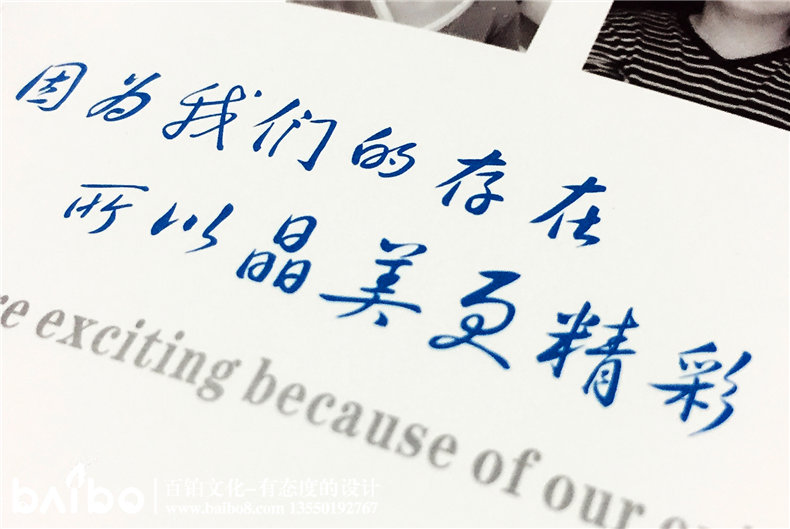 因为我们的存在
所以晶美更精彩
re exciting because of our
baibo 百铂文化-有态度的设计
www.baibo8.com 13550192767